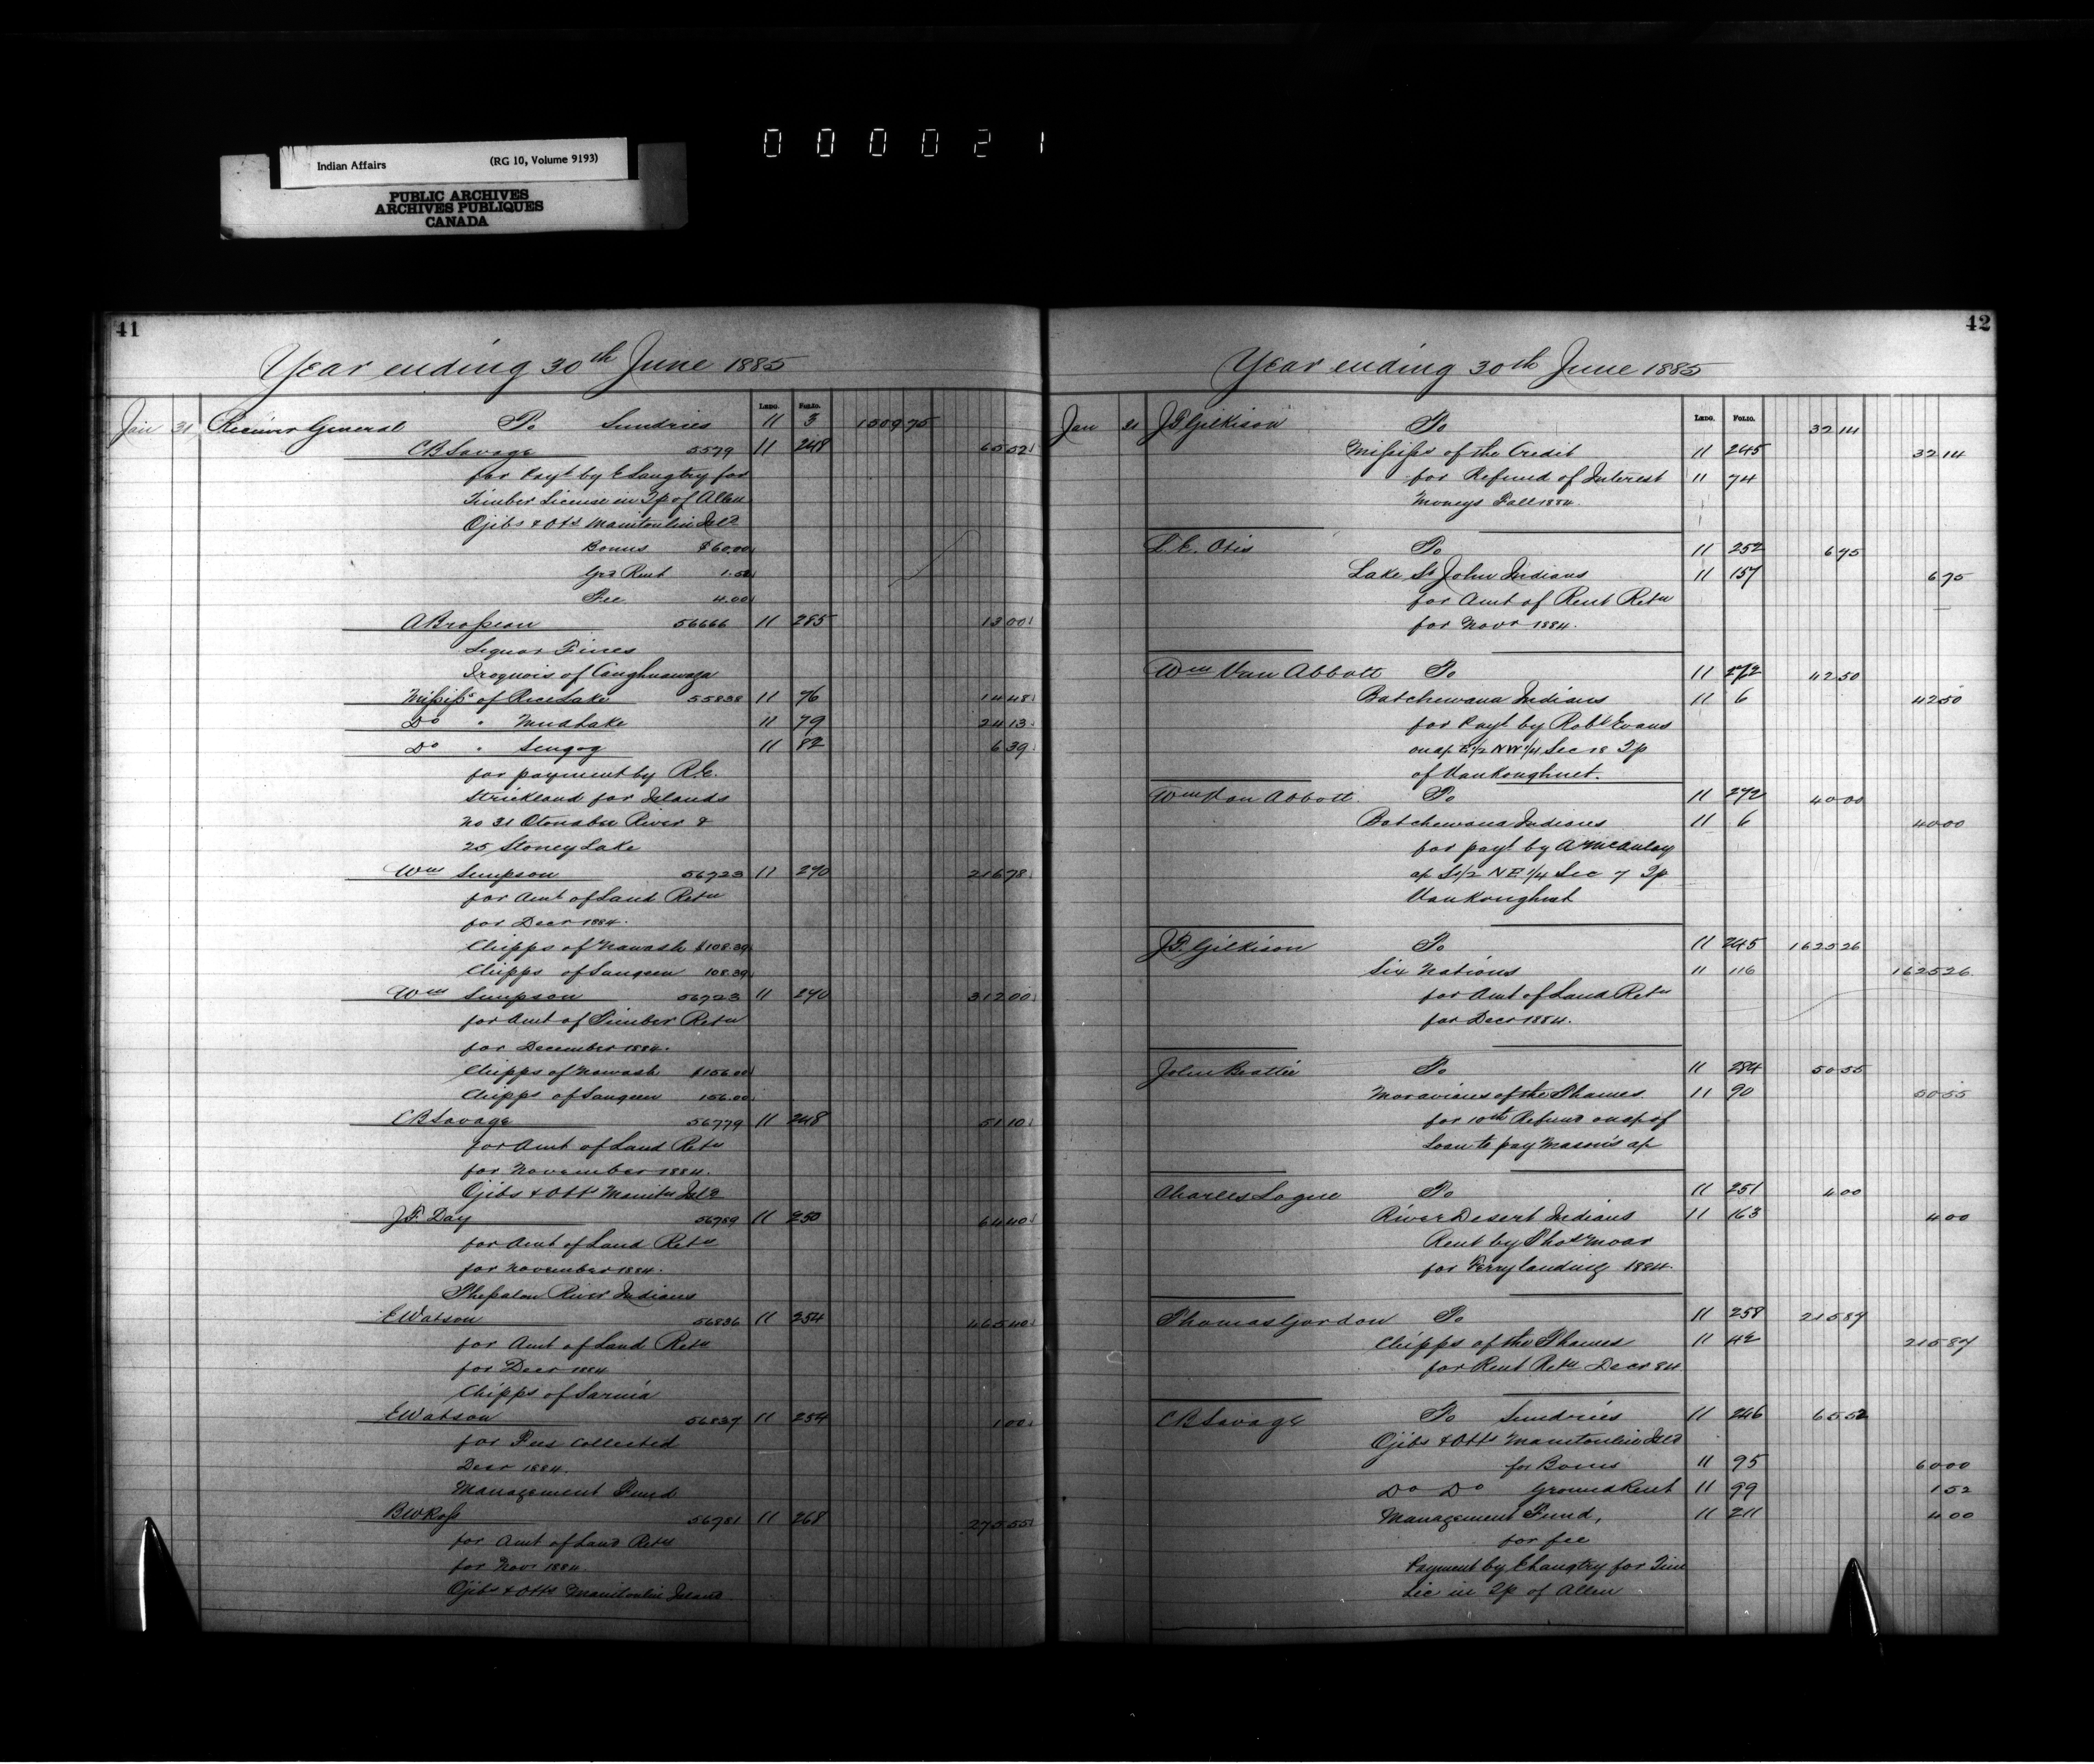 000021
Indian Affairs (RG 10, Volume 9193)
PUBLIC ARCHIVES
ARCHIVES PUBLIQUES
CANADA
41
Year ending 30th June 1885
Ledg. Folio.
Jan 31 Receiver General To Sundries 11 3 1509 75
CB Savage 5579 11 248 65 52
for Payt by E Langtry for
Timber License in Tp of Allen
Ojibs & Otts Manitoulin Isld
Bonus $60.00
Grd Rent 1.52
Fee 4.00
A Brosseau 56666 11 285 13 00
Liquor Fines
Iroquois of Caughnawaga
Mississs of Rice Lake 55838 11 76 14 48
Do " Mud Lake 11 79 24 13
Do " Scugog 11 82 6 39
for payment by R.C.
Strickland for Islands
No 31 Otonabee River &
25 Stoney Lake
Wm Simpson 56723 11 270 216 78
for Amt of Land Retn
for Decr 1884.
Chipps of Nawash $108.39
Chipps of Saugeen 108.39
Wm Simpson 56723 11 270 312 00
for Amt of Timber Retn
for December 1884.
Chipps of Nawash $156.00
Chipps of Saugeen 156.00
CB Savage 56779 11 248 51 10
for Amt of Land Retn
for November 1884.
Ojibs & Otts Manitn Isld
J.F. Day 56789 11 250 64 40
for Amt of Land Retn
for November 1884.
Thessalon River Indians
E Watson 56836 11 254 465 40
for Amt of Land Retn
for Decr 1884
Chipps of Sarnia
E Watson 56837 11 254 1 00
for Fees Collected
Decr 1884.
Management Fund
BW Ross 56781 11 268 275 55
for Amt of Land Retn
for Novr 1884
Ojibs & Otts Manitoulin Island
42
Year ending 30th June 1885
Ledg. Folio.
Jan 31 J.T. Gilkison To 32 14
Mississs of the Credit 11 245 32 14
for Refund of Interest 11 74
Moneys Fall 1884.
L.E. Otis To 11 252 6 75
Lake St John Indians 11 157 6 75
for Amt of Rent Retn
for Novr 1884.
Wm Van Abbott To 11 272 42 50
Batchewana Indians 11 6 42 50
for Payt by Robt Evans
on a/c E1/2 NW1/4 Sec 18 Tp
of VanKoughnet.
Wm Van Abbott To 11 272 40 00
Batchewana Indians 11 6 40 00
for payt by A McAulay
a/c S1/2 NE1/4 Sec 7 Tp
VanKoughnet
J.T. Gilkison To 11 245 1625 26
Six Nations 11 116 1625 26
for Amt of Land Retn
for Decr 1884.
John Beattie To 11 284 50 55
Moravians of the Thames 11 90 50 55
for 10th Refund on a/c of
Loan to pay Mason's a/c
Charles Logue To 11 251 4 00
River Desert Indians 11 163 4 00
Rent by Thos Moar
for Ferry landing 1884.
Thomas Gordon To 11 258 215 87
Chipps of the Thames 11 42 215 87
for Rent Retn Decr 84
CB Savage To Sundries 11 246 65 52
Ojibs & Otts Manitoulin Isld
for Bonus 11 95 60 00
Do Do Ground Rent 11 99 1 52
Management Fund, 11 211 4 00
for fee
Payment by E Langtry for Tim
Lic in Tp of Allen